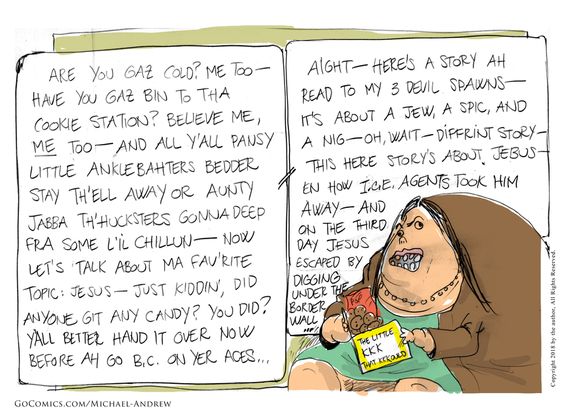 ARE YOU GAZ COLD? ME TOO—
HAVE YOU GAZ BIN TO THA
COOKIE STATION? BELIEVE ME,
ME TOO—AND ALL Y'ALL PANSY
LITTLE ANKLEBAHTERS BEDDER
STAY TH'ELL AWAY OR AUNTY
JABBA TH'HUCKSTERS GONNA DEEP
FRA SOME L'IL CHILLUN—NOW
LET'S TALK ABOUT MA FAV'RITE
TOPIC: JESUS—JUST KIDDIN', DID
ANYONE GIT ANY CANDY? YOU DID?
Y'ALL BETTER HAND IT OVER NOW
BEFORE AH GO B.C. ON YER ACES...
AIGHT—HERE'S A STORY AH
READ TO MY 3 DEVIL SPAWNS—
IT'S ABOUT A JEW, A SPIC, AND
A NIG—OH, WAIT—DIFFRINT STORY—
THIS HERE STORY'S ABOUT JEBUS—
EN HOW I.C.E. AGENTS TOOK HIM
AWAY—AND
ON THE THIRD
DAY JESUS
ESCAPED BY
DIGGING
UNDER THE
BORDER
WALL...
THE LITTLE
KKK
THAT KKKOULD
GOCOMICS.COM/MICHAEL-ANDREW
Copyright 2018 by the author. All Rights Reserved.